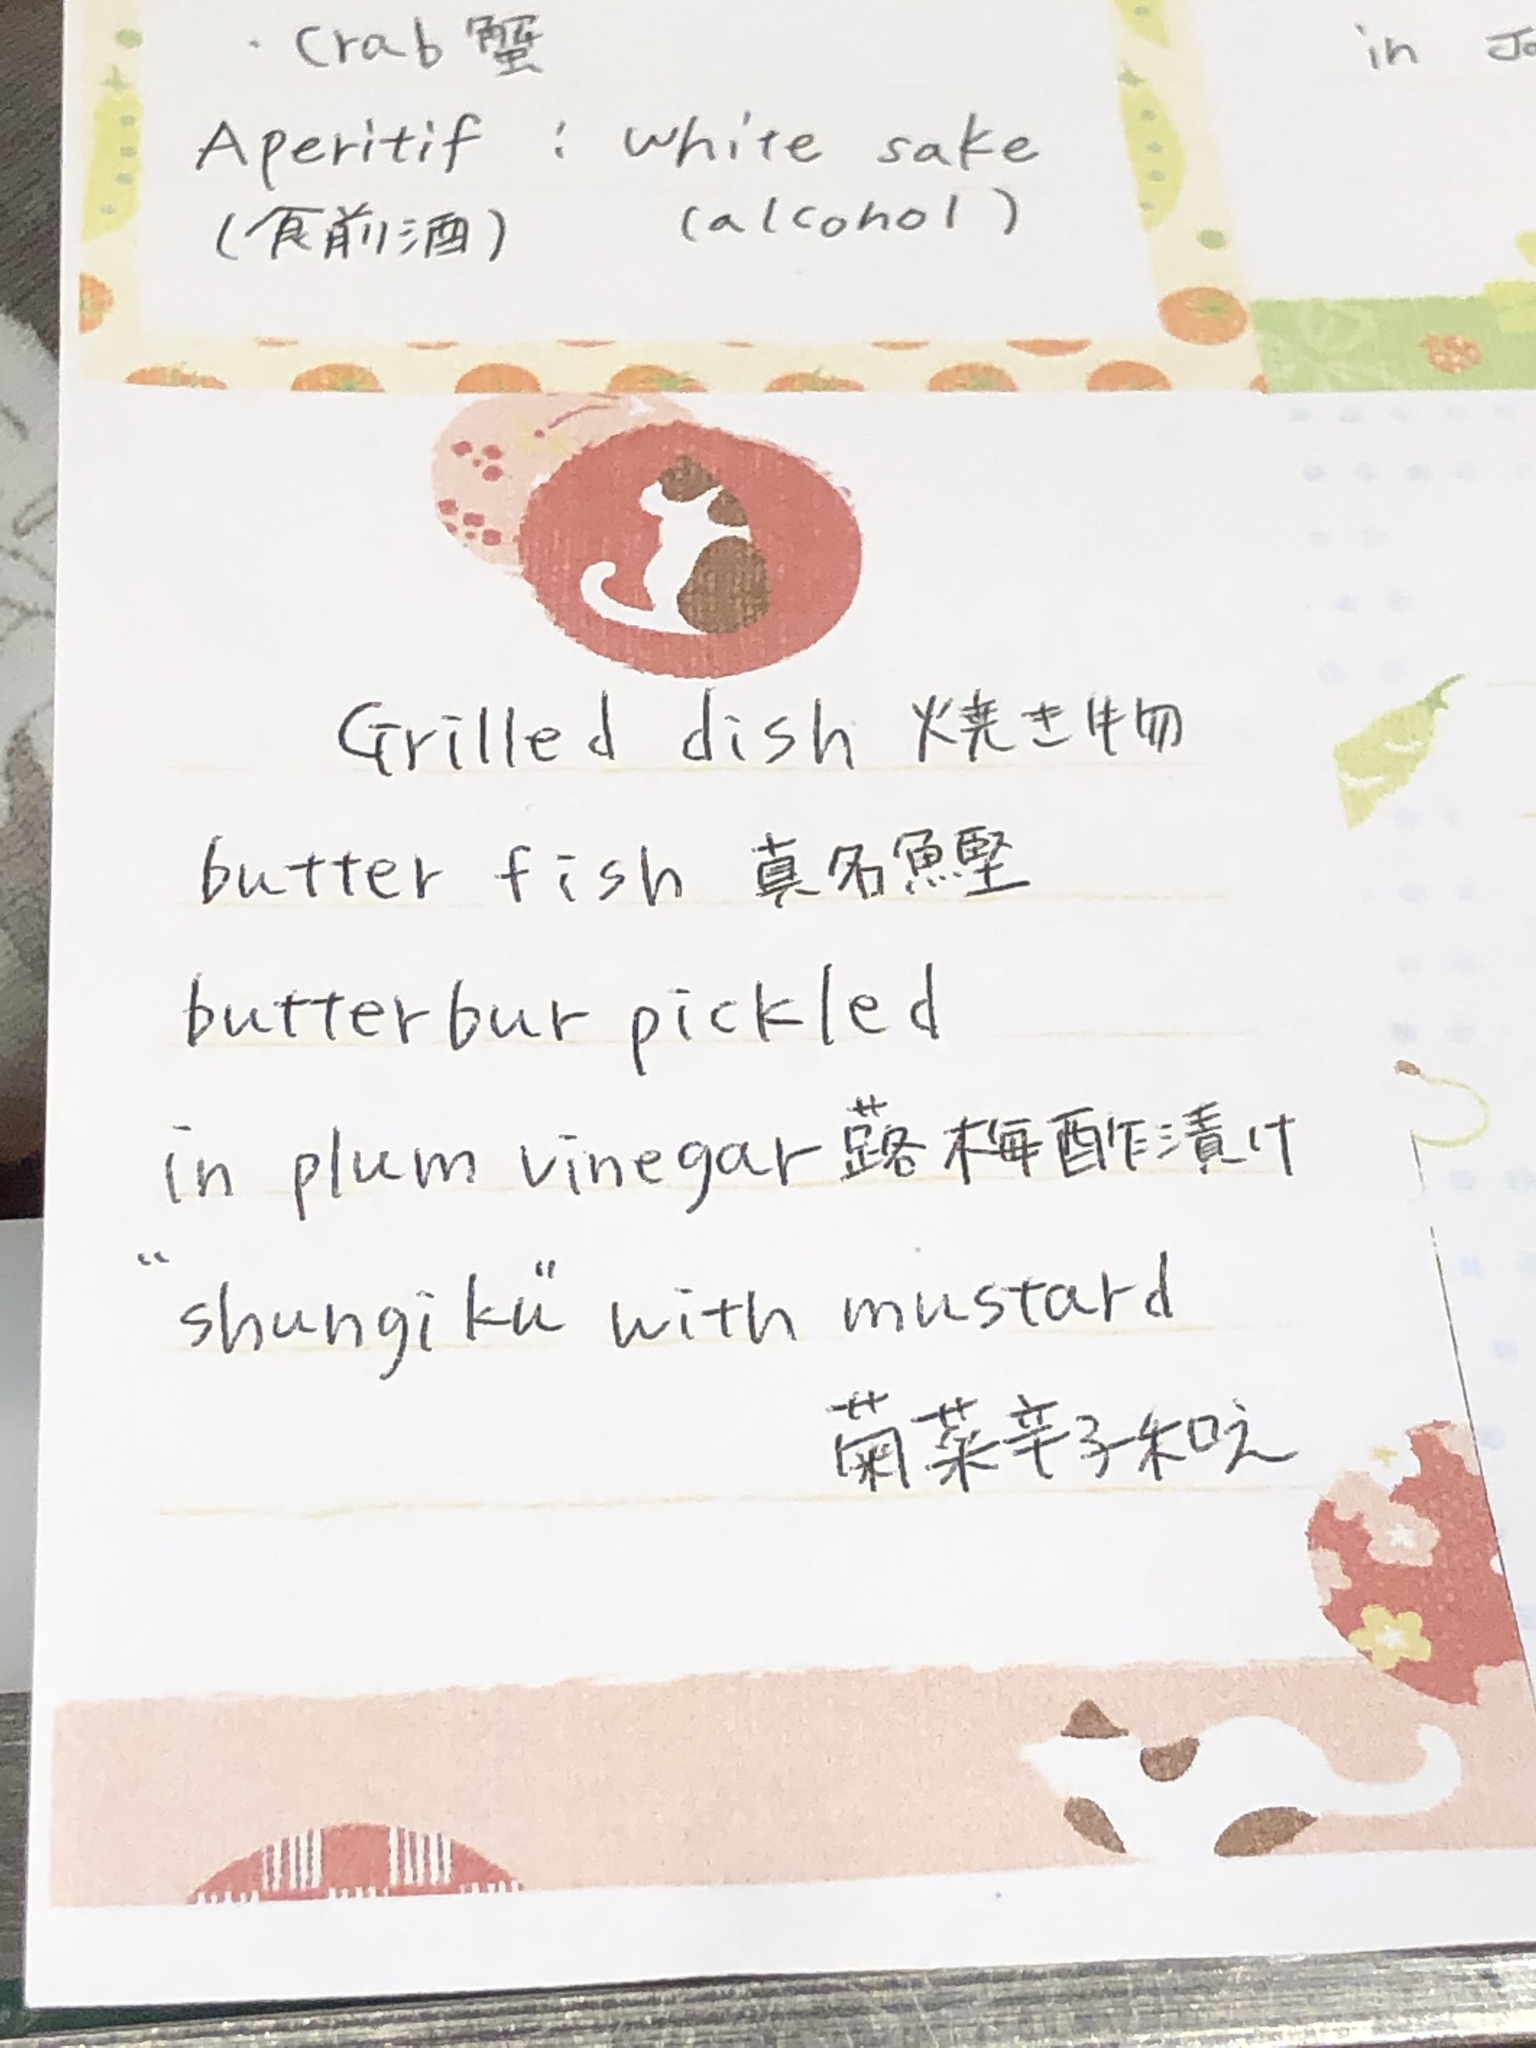 · Crab 蟹
Aperitif : white sake
(食前酒) (alcohol)
in
Grilled dish 焼き物
butter fish 真名鰹
butterbur pickled
in plum vinegar 蕗梅酢漬け
"shungiku" with mustard
菊菜辛子和え